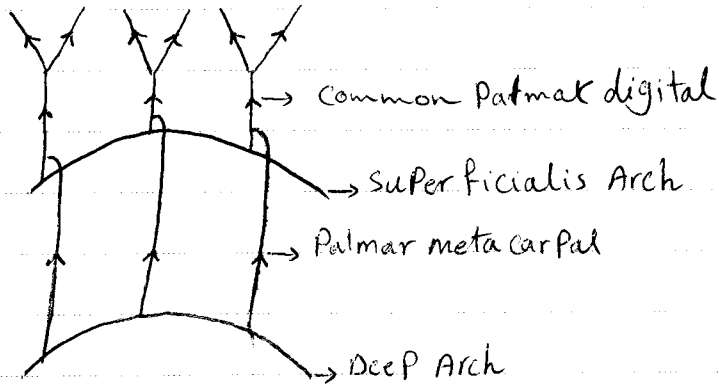 Common Palmar digital
Superficialis Arch
Palmar metacarpal
Deep Arch